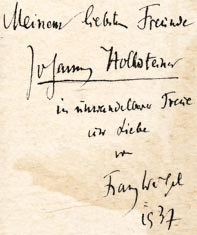 Meinem liebsten Freunde
Johannes Hollnsteiner
in unwandelbarer Treue
und Liebe
von
Franz Werfel
1937